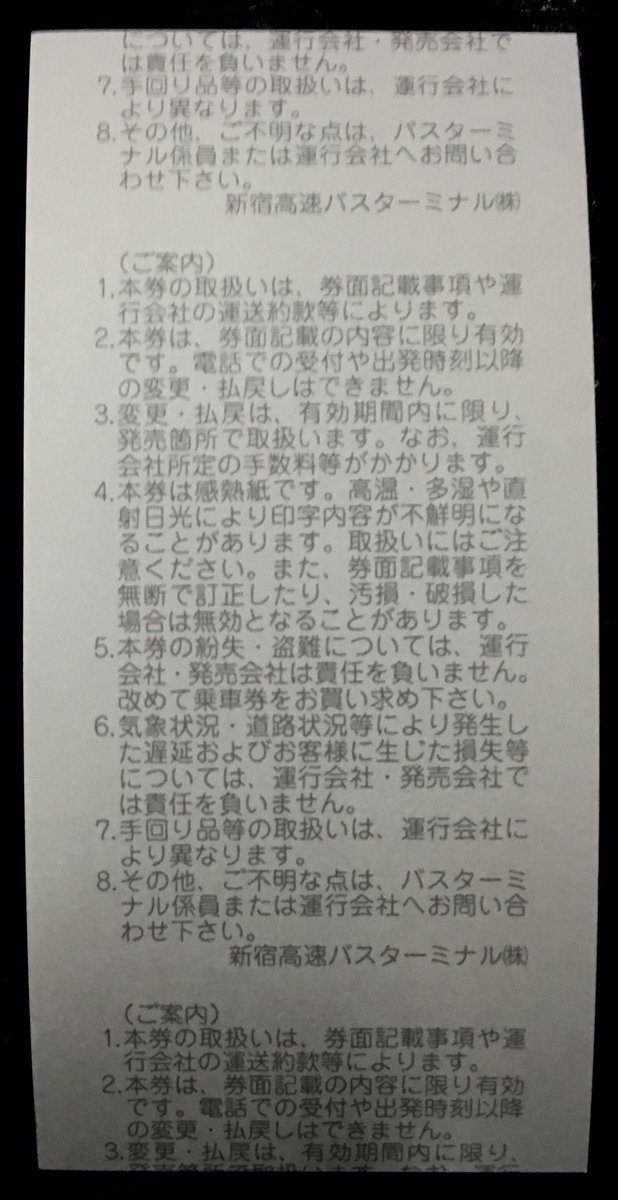 については、運行会社・発売会社で
は責任を負いません。
7.手回り品等の取扱いは、運行会社に
より異なります。
8.その他、ご不明な点は、バスターミ
ナル係員または運行会社へお問い合
わせ下さい。
新宿高速バスターミナル㈱
(ご案内)
1.本券の取扱いは、券面記載事項や運
行会社の運送約款等によります。
2.本券は、券面記載の内容に限り有効
です。電話での受付や出発時刻以降
の変更・払戻しはできません。
3.変更・払戻は、有効期間内に限り、
発売箇所で取扱います。なお、運行
会社所定の手数料等がかかります。
4.本券は感熱紙です。高温・多湿や直
射日光により印字内容が不鮮明にな
ることがあります。取扱いにはご注
意ください。また、券面記載事項を
無断で訂正したり、汚損・破損した
場合は無効となることがあります。
5.本券の紛失・盗難については、運行
会社・発売会社は責任を負いません。
改めて乗車券をお買い求め下さい。
6.気象状況・道路状況等により発生し
た遅延およびお客様に生じた損失等
については、運行会社・発売会社で
は責任を負いません。
7.手回り品等の取扱いは、運行会社に
より異なります。
8.その他、ご不明な点は、バスターミ
ナル係員または運行会社へお問い合
わせ下さい。
新宿高速バスターミナル㈱
(ご案内)
1.本券の取扱いは、券面記載事項や運
行会社の運送約款等によります。
2.本券は、券面記載の内容に限り有効
です。電話での受付や出発時刻以降
の変更・払戻しはできません。
3.変更・払戻は、有効期間内に限り、
発売箇所で取扱います。なお、運行